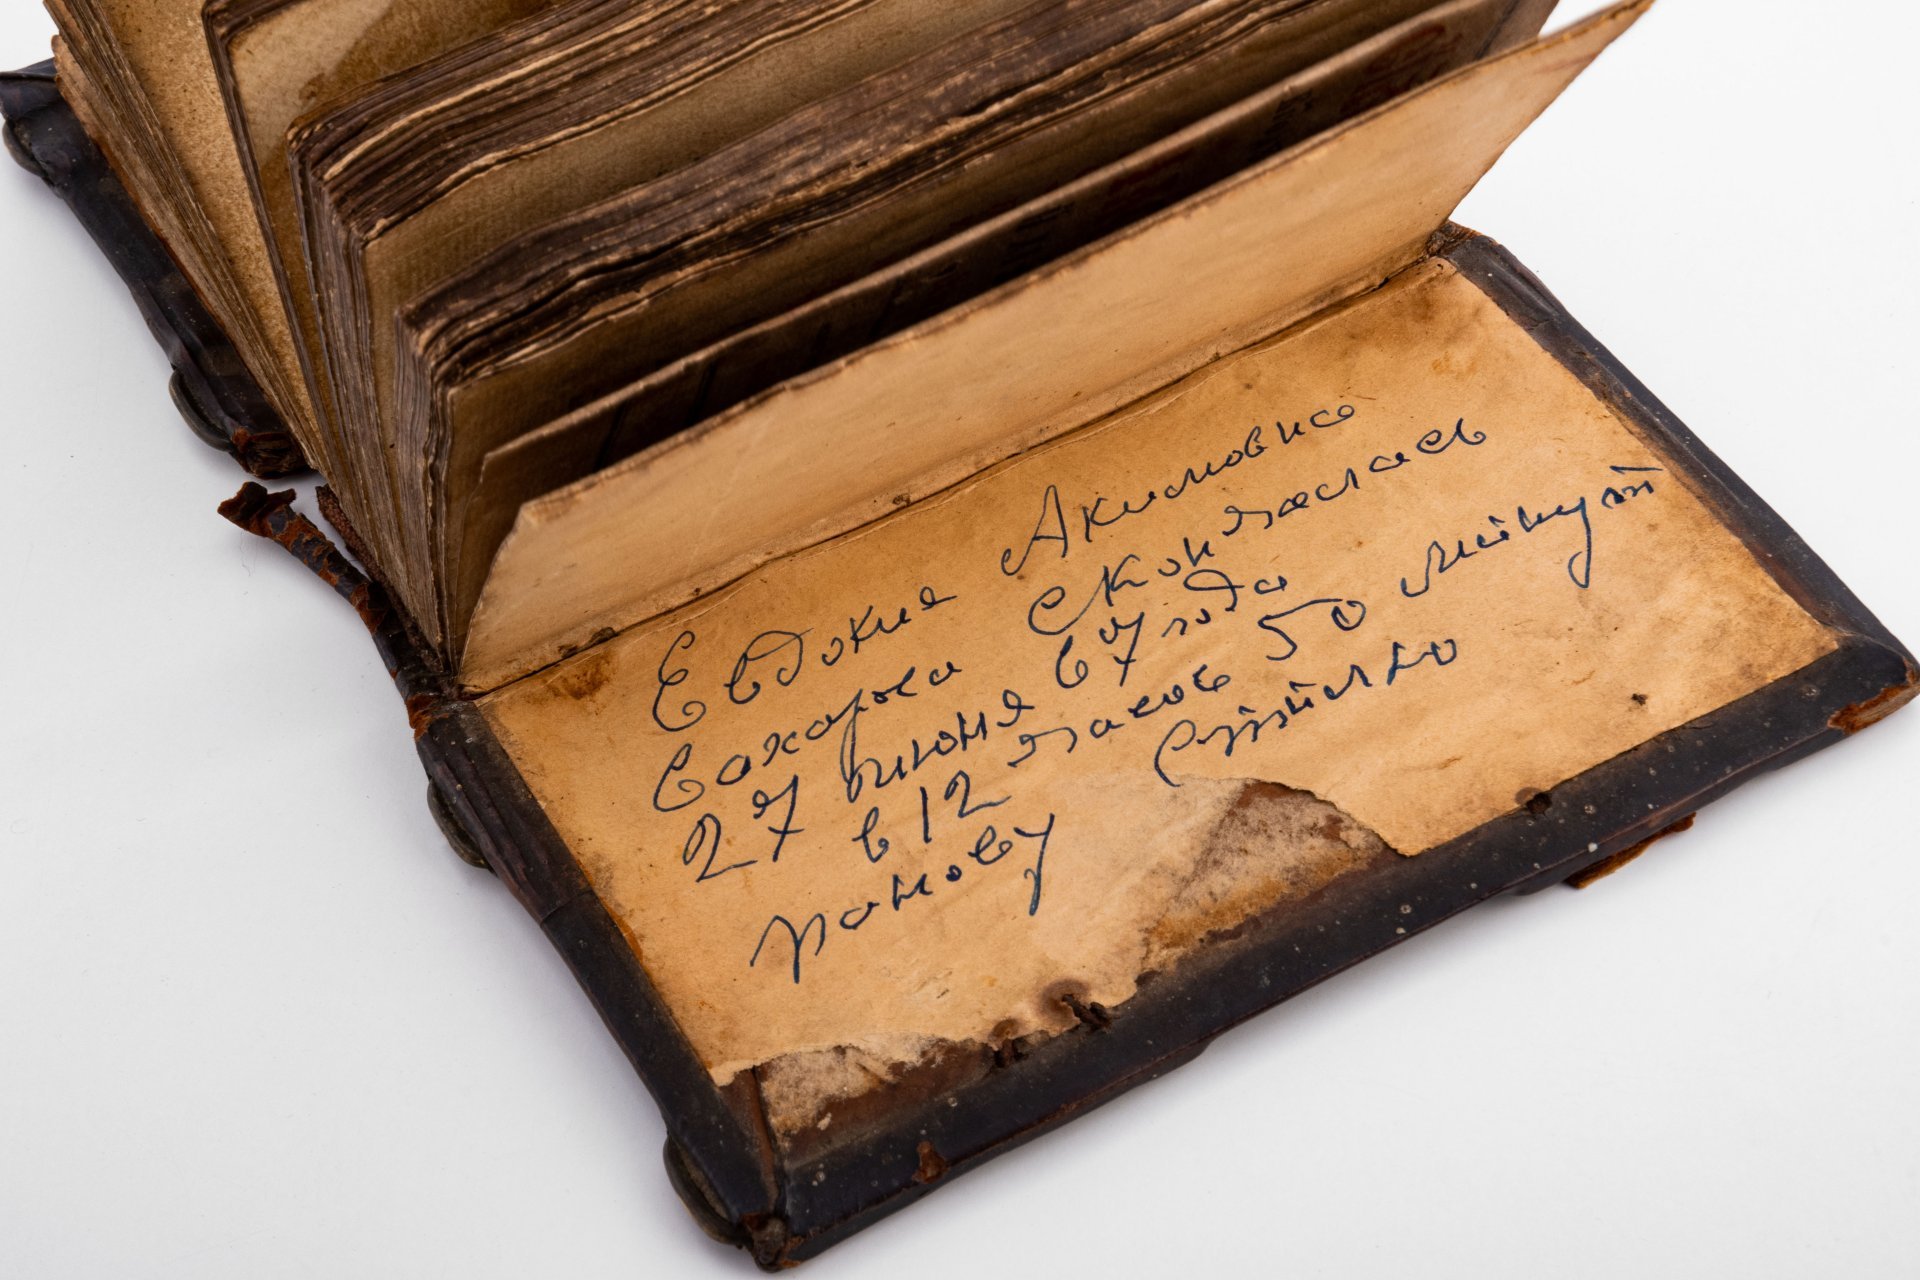 Евдокия Акимовна
Сахарова скончалась
27 июня 67 года
в 12 часов 50 минут
ранову